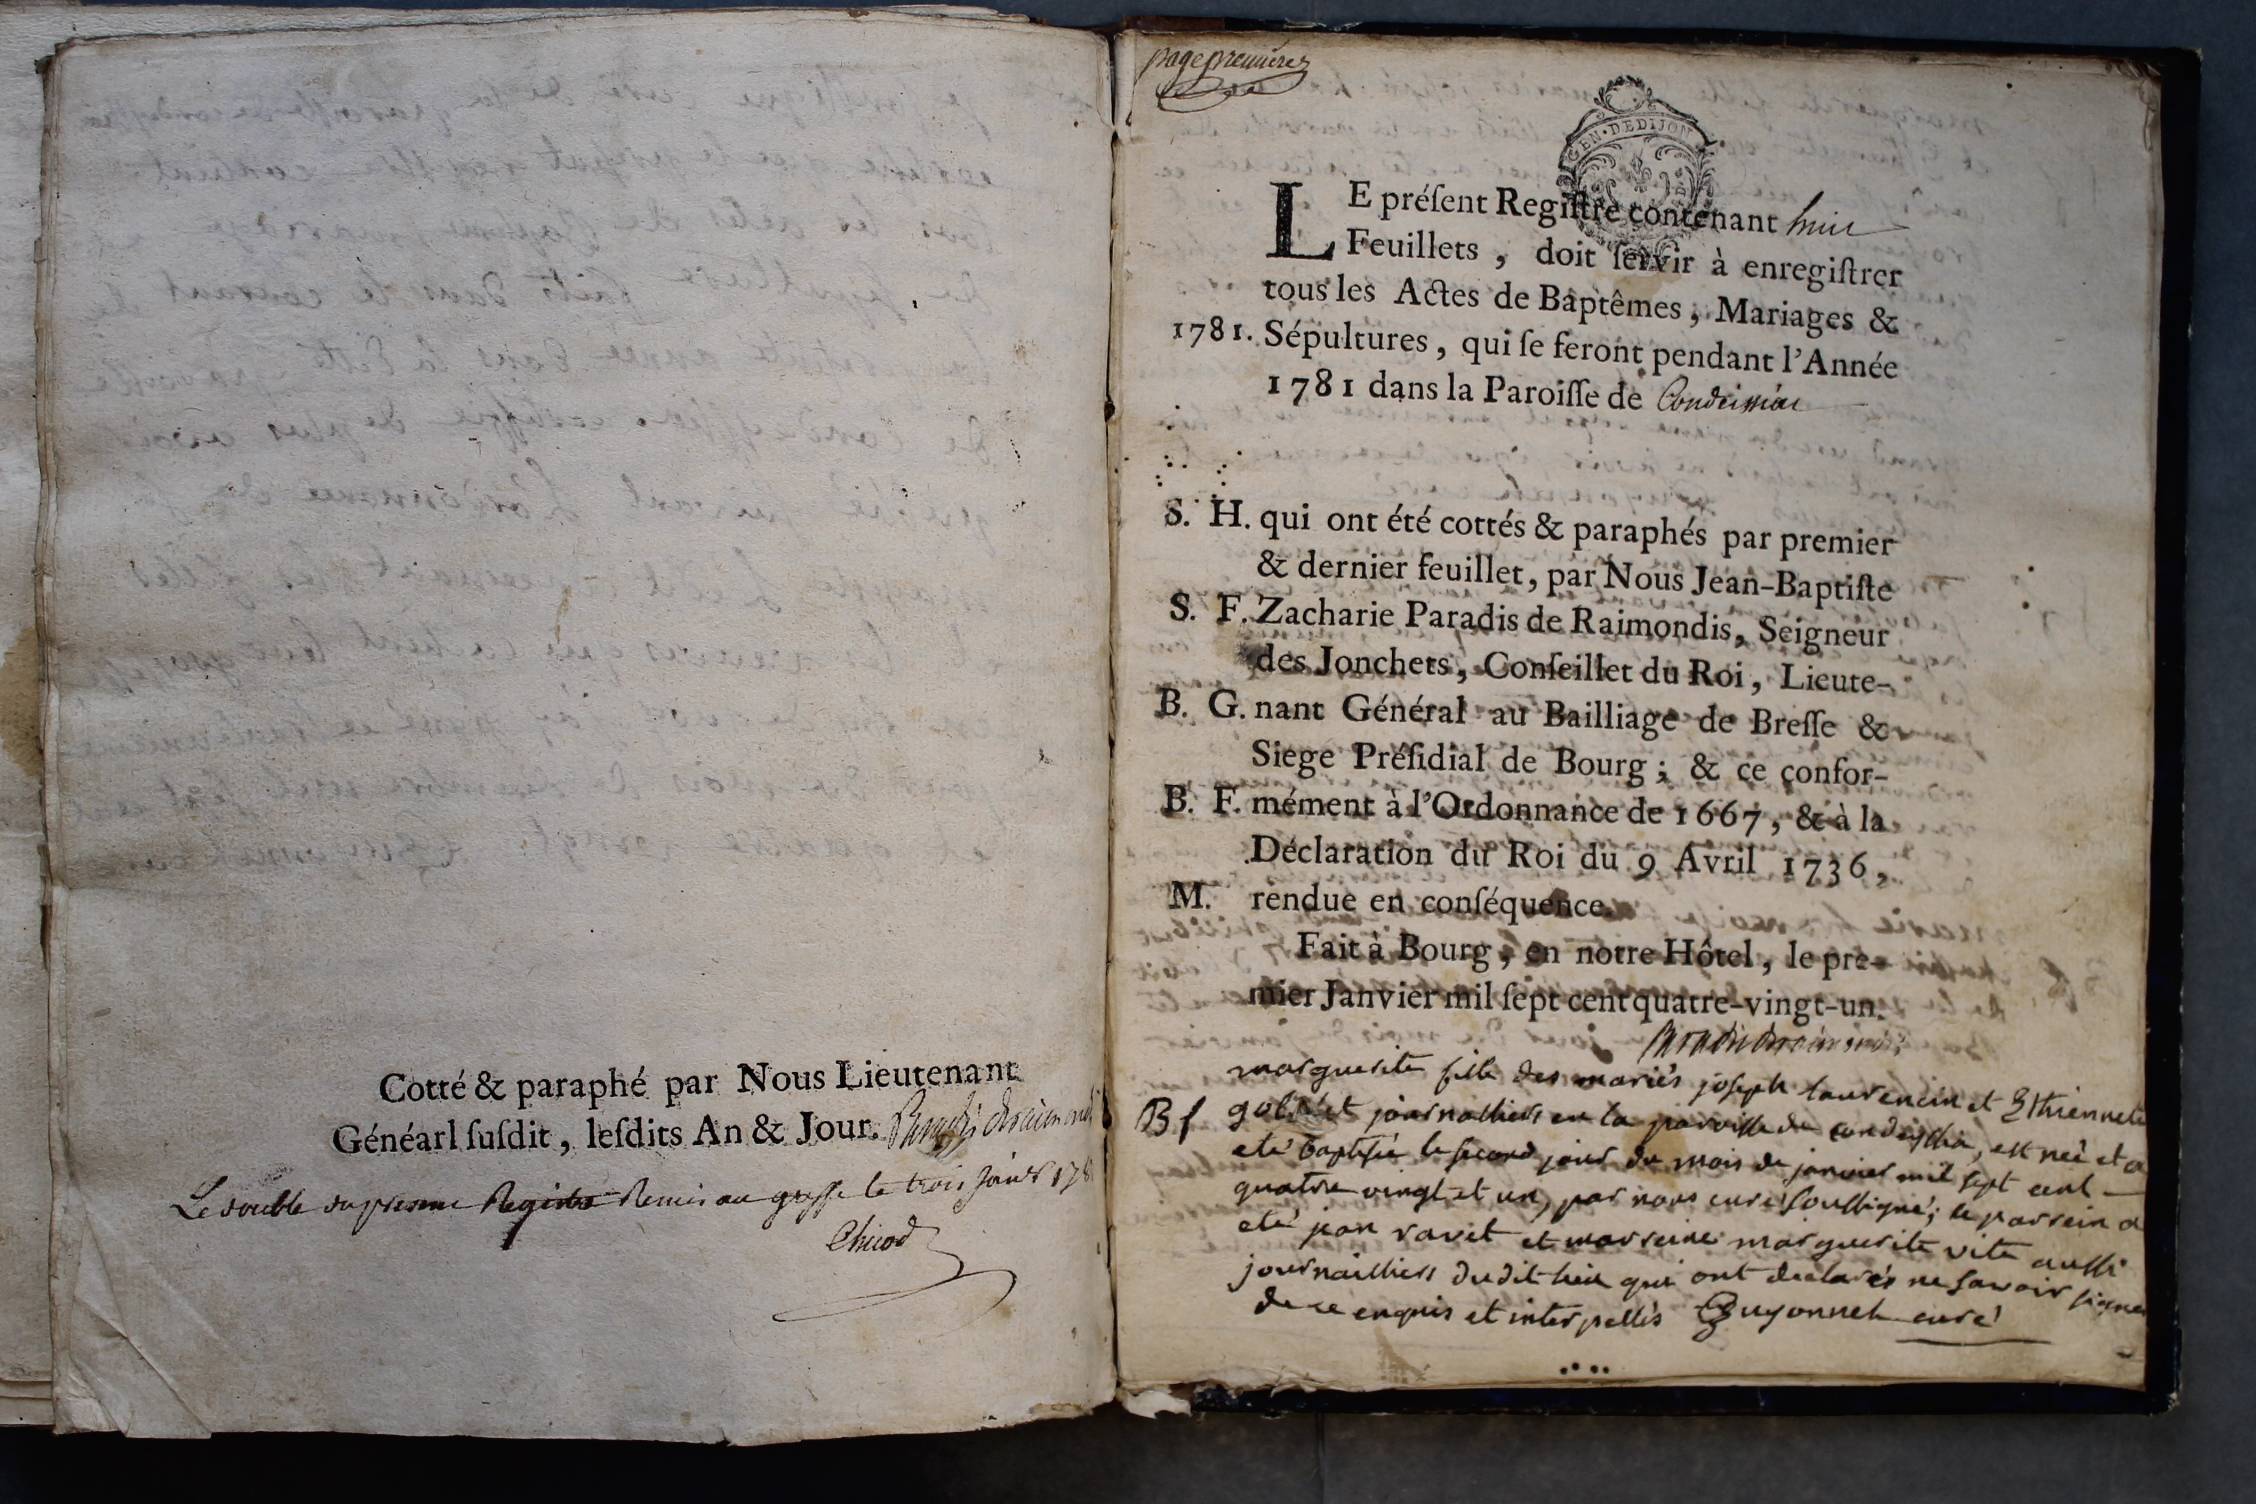 Cotté & paraphé par Nous Lieutenant
Généarl ſuſdit, leſdits An & Jour. Paradis de raimondis
Le double du present Registre Remis au greffe le trois Janvr 178
Chicod
page premiere
GEN · DE DIJON
LE préſent Regiſtre contenant huit
Feuillets, doit ſervir à enregiſtrer
tous les Actes de Baptêmes, Mariages &
1781. Sépultures, qui ſe feront pendant l'Année
1781 dans la Paroiſſe de Condeissiat
S. H. qui ont été cottés & paraphés par premier
& dernier feuillet, par Nous Jean-Baptiſte
S. F. Zacharie Paradis de Raimondis, Seigneur
des Jonchets, Conſeillet du Roi, Lieute-
B. G. nant Général au Bailliage de Breſſe &
Siege Préſidial de Bourg; & ce confor-
B. F. mément à l'Ordonnance de 1667, & à la
Déclaration du Roi du 9 Avril 1736,
M. rendue en conſéquence.
Fait à Bourg, en notre Hôtel, le pre-
mier Janvier mil ſept cent quatre-vingt-un.
Paradis de raimondis
marguerite fille des mariés joseph laurencin et Ethiennete
B f journalliers en la paroisse de condeyssia, est née et a
eté baptisée le second jour du mois de janvier mil sept cent
quatre vingt et un, par nous curé soussigné; le parrein a
eté jean ravet et marreine marguerite vite aussi
journailliers dudit lieu qui ont declarés ne savoir signer
de ce enquis et interpellés Guyonnet curé